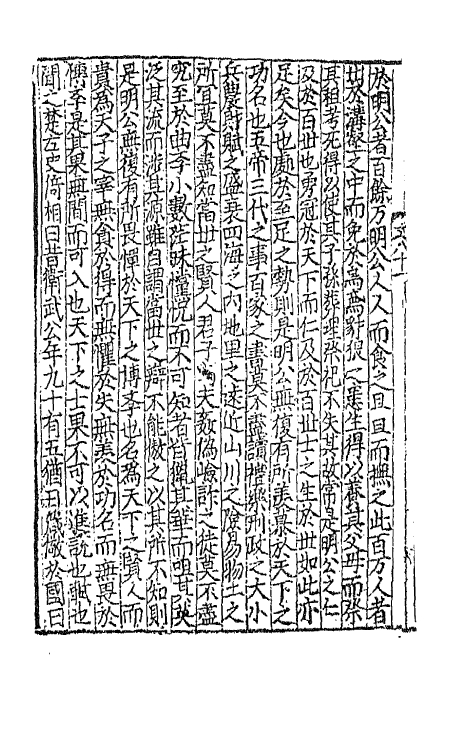 於明公者百餘万明公人人而食之旦旦而撫之此百万人者
出於溝壑之中而免於烏鳶豺狼之患生得以養其父母而祭
其祖考死得以使其子孫葬埋祭祀不失其故常是明公之仁
及於百世也勇冠於天下而仁及於百世士之生於世如此亦
足矣今也處於至足之勢則是明公無復有所羨慕於天下之
功名也五帝三代之事百家之書莫不盡讀禮樂刑政之大小
兵農財賦之盛衰四海之內地里之遠近山川之險易物土之
所宜莫不盡知當世之賢人君子與夫姦偽險詐之徒莫不盡
究至於曲学小數茫昧惝恍而不可知者皆獵其華而咀其英
泛其流而涉其源雖自謂當世之辯不能傲之以其所不知則
是明公無復有所畏憚於天下之博学也名為天下之賢人而
貴為天子之宰無貪於得而無懼於失無羨於功名而無畏於
博学是其果無間而可入也天下之士果不可以進說也軾也
聞之楚左史倚相曰昔衛武公年九十有五猶日箴儆於國曰